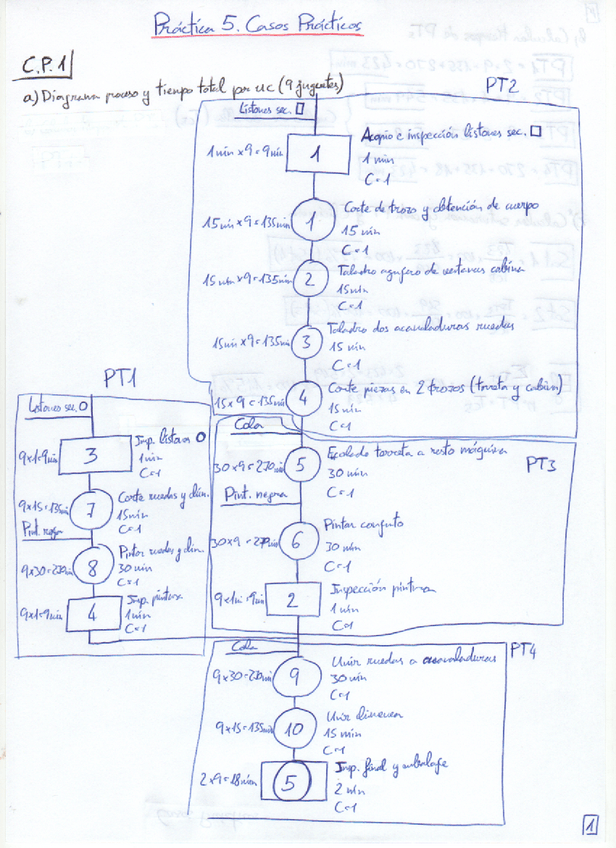 Práctica 5. Casos Prácticos
C.P.1
a) Diagrama proceso y tiempo total por uc (9 juguetes)
PT2
Listones sec. □
1 min x 9 = 9 min
1
Acopio e inspección listones sec. □
1 min
C=1
15 min x 9 = 135 min
1
Corte de trozo y obtención de cuerpo
15 min
C=1
15 min x 9 = 135 min
2
Taladro agujero de ventanas cabina
15 min
C=1
15 min x 9 = 135 min
3
Taladro dos acanaladuras ruedas
15 min
C=1
15 x 9 = 135 min
4
Corte piezas en 2 trozos (torreta y cabina)
15 min
C=1
PT1
Listones sec. O
9x1=9 min
3
Insp. listones O
1 min
C=1
9x15=135 min
7
Corte ruedas y chim.
15 min
C=1
Pint. negra
9x30=270 min
8
Pintar ruedas y chim.
30 min
C=1
9x1=9 min
4
Insp. pintura
1 min
C=1
PT3
Cola
30 x 9 = 270 min
5
torreta a resto máquina
30 min
C=1
Pint. negra
30 x 9 = 270 min
6
Pintar conjunto
30 min
C=1
9x1 = 9 min
2
Inspección pintura
1 min
C=1
PT4
Cola
9 x 30 = 270 min
9
Unir ruedas a acanaladuras
30 min
C=1
9 x 15 = 135 min
10
Unir chimenea
15 min
C=1
2 x 9 = 18 min
5
Insp. final y embalaje
2 min
C=1
1